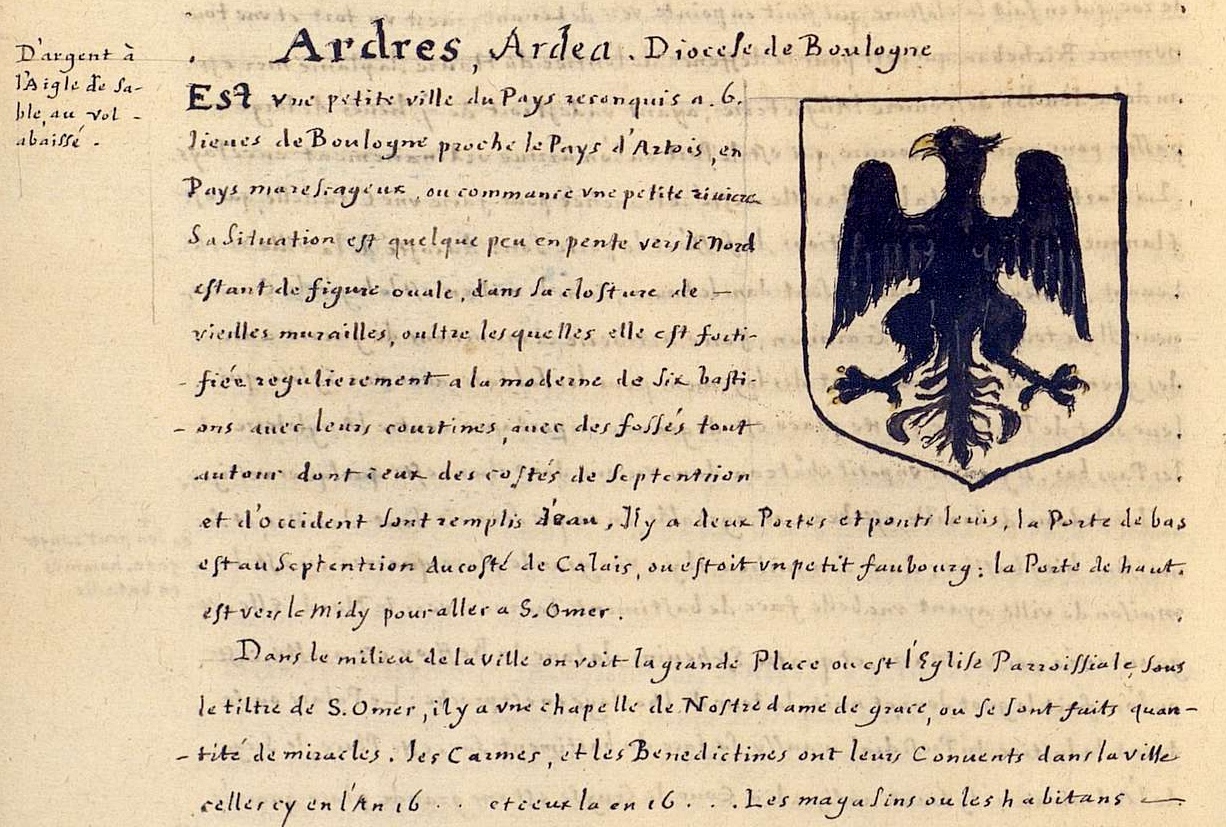 D'argent à
l'Aigle de Sa-
ble, au vol -
abaissé.
Ardres, Ardea. Diocese de Boulogne
Est vne petite ville du Pays reconquis a .6.
lieues de Boulogne proche le Pays d'Artois, en
Pays marescageux, ou commance vne petite riuiere
Sa Situation est quelque peu en pente vers le Nord
estant de figure ouale, dans sa closture de —
vieilles murailles, oultre lesquelles elle est forti-
- fiée regulierement a la moderne de Six basti-
- ons auec leurs courtines, auec des fossés tout
autour dont ceux des costés de Septention
et d'occident sont remplis d'eau, Il y a deux Portes et ponts leuis, la Porte de bas
est au Septention du costé de Calais, ou estoit vn petit faubourg: la Porte de haut.
est vers le Midy pour aller a S. Omer.
Dans le milieu de la ville on voit la grande Place ou est l'Eglise Parroissiale, sous
le tiltre de S. Omer, il y a vne chapelle de Nostre dame de grace, ou se sont faits quan-
- tité de miracles. les Carmes, et les Benedictines ont leurs Conuents dans la ville
celles cy en l'An 16 . . et ceux la en 16 . . . Les magasins ou les habitans —